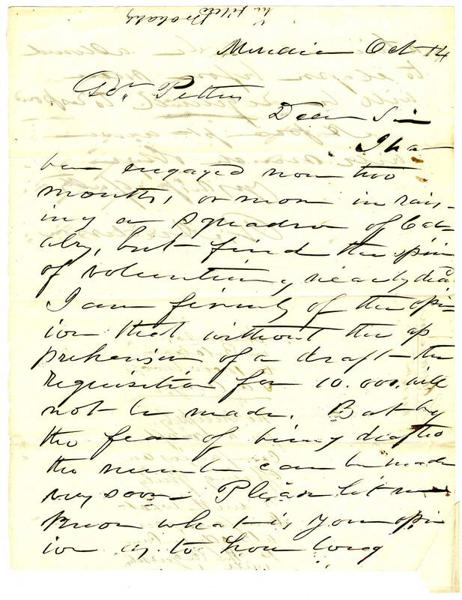 Meridian Oct 14
Gov Pettus
Dear Sir
I ha
been engaged now two
months, or more in rais-
ing a squadron of Cav
alry, but find the spirit
of volunteering nearly dead
I am firmly of the opin
ion that without the ap
prehension of a draft the
requisition for 10.000 will
not be made. But by
the fear of being drafted
the number can be made
very soon. Please let me
know what is your opin
ion as to how long